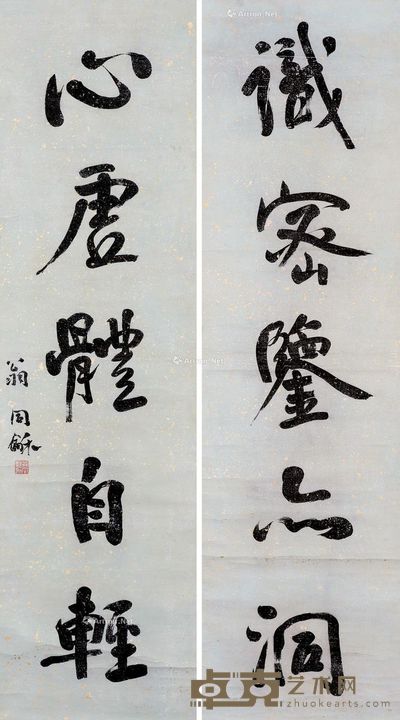 識密鑒亦洞
心虛體自輕
翁同龢
卓克艺术网
zhuokearts.com
Artron.Net